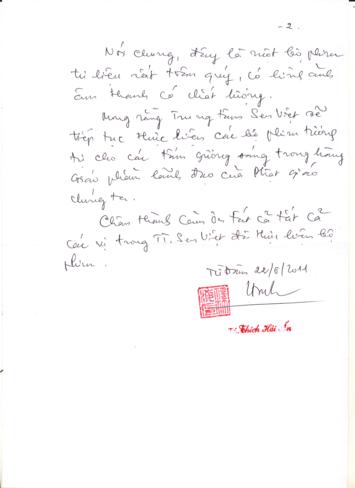 - 2 -
Nói chung, đây là một bộ phim
tư liệu rất trân quý, có hình ảnh
âm thanh có chất lượng.
Mong rằng Trung tâm Sen Việt sẽ
tiếp tục thực hiện các bộ phim tương
tự cho các tấm gương sáng trong hàng
Giáo phẩm lãnh đạo của Phật giáo
chúng ta.
Chân thành cảm ơn tất cả tất cả
các vị trong TT. Sen Việt đã thực hiện bộ
phim.
Từ Đàm 22/8/2011
Thích Hải Ấn